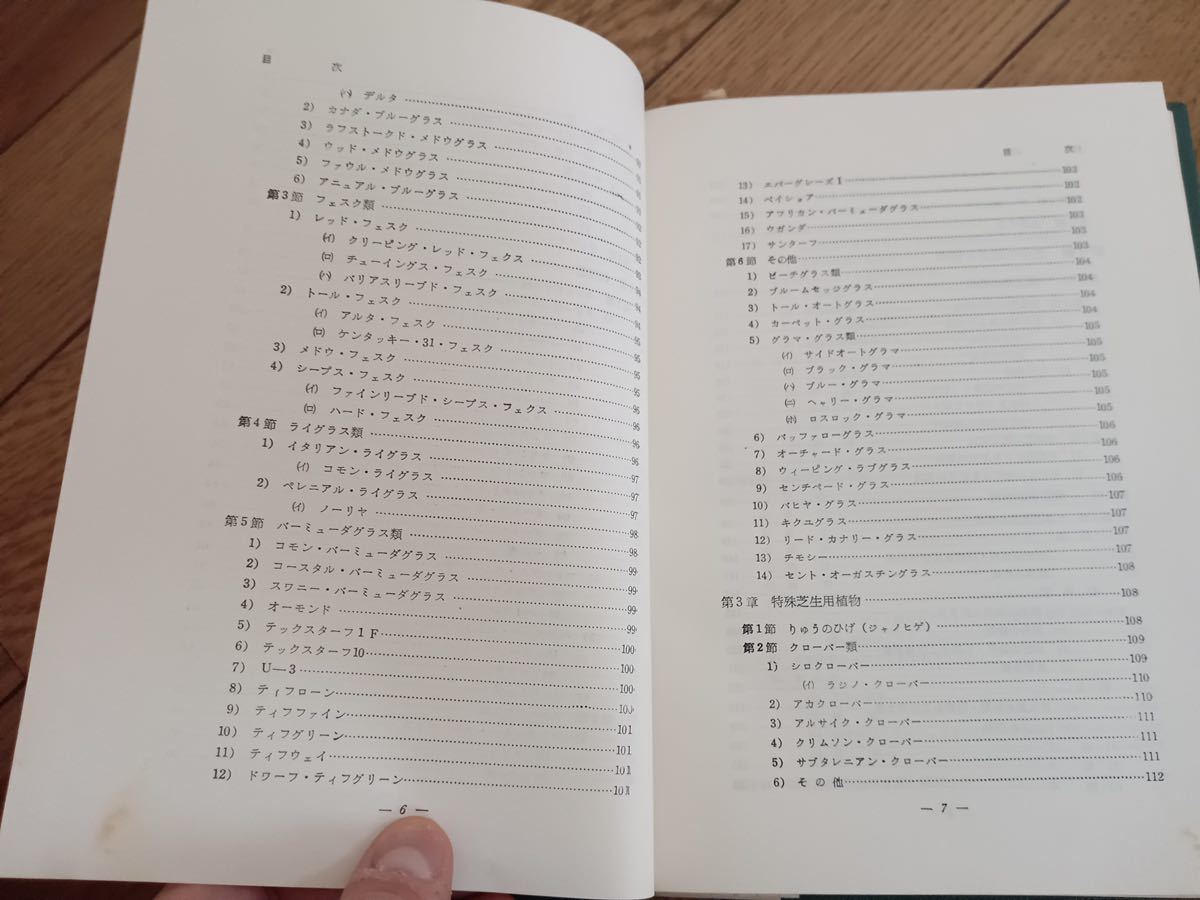 目 次
(ハ) デルタ
2) カナダ・ブルーグラス
3) ラフストークド・メドウグラス
4) ウッド・メドウグラス
5) ファウル・メドウグラス
6) アニュアル・ブルーグラス
第3節 フェスク類
1) レッド・フェスク
(イ) クリーピング・レッド・フェクス
(ロ) チューイングス・フェスク
(ハ) バリアスリーブド・フェスク
2) トール・フェスク
(イ) アルタ・フェスク
(ロ) ケンタッキー・31・フェスク
3) メドウ・フェスク
4) シープス・フェスク
(イ) ファインリーブド・シープス・フェクス
(ロ) ハード・フェスク
第4節 ライグラス類
1) イタリアン・ライグラス
(イ) コモン・ライグラス
2) ペレニアル・ライグラス
(イ) ノーリヤ
第5節 バーミューダグラス類
1) コモン・バーミューダグラス
2) コースタル・バーミューダグラス
3) スワニー・バーミューダグラス
4) オーモンド
5) テックスターフ1F………100
6) テックスターフ10………100
7) U—3………100
8) ティフローン
9) ティフファイン………101
10) ティフグリーン………101
11) ティフウェイ………101
12) ドワーフ・ティフグリーン
— 6 —
目 次
13) エバーグレーズI………102
14) ベイショア………102
15) アフリカン・バーミューダグラス………103
16) ウガンダ………103
17) サンターフ………103
第6節 その他………104
1) ビーチグラス類………104
2) ブルームセッジグラス………104
3) トール・オートグラス………104
4) カーペット・グラス………105
5) グラマ・グラス類………105
(イ) サイドオートグラマ………105
(ロ) ブラック・グラマ………105
(ハ) ブルー・グラマ………105
(ニ) ヘャリー・グラマ………105
(ホ) ロスロック・グラマ………106
6) バッファローグラス………106
7) オーチャード・グラス………106
8) ウィーピング・ラブグラス………106
9) センチペード・グラス………107
10) バヒヤ・グラス………107
11) キクユグラス………107
12) リード・カナリー・グラス………107
13) チモシー………108
14) セント・オーガスチングラス………108
第3章 特殊芝生用植物………108
第1節 りゅうのひげ(ジャノヒゲ)………109
第2節 クローバー類………109
1) シロクローバー………110
(イ) ラジノ・クローバー………110
2) アカクローバー………111
3) アルサイク・クローバー………111
4) クリムソン・クローバー………111
5) サブタレニアン・クローバー
6) その他………112
— 7 —